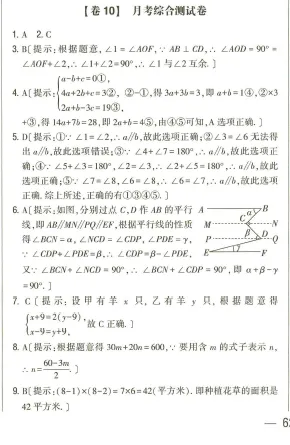 【卷10】 月考综合测试卷
1. A 2. C
3. B[提示:根据题意,∠1=∠AOF,∵AB⊥CD,∴∠AOD=90°=
∠AOF+∠2,∴∠1+∠2=90°,∴∠1与∠2互余.]
4. A[提示:{a-b+c=0①, 4a+2b+c=3②, 2a+b-3c=19③, ②-①,得3a+3b=3,即a+b=1④,②×3
+③,得14a+7b=28,即2a+b=4⑤,由④⑤可知,A选项正确.]
5. D[提示:①∵∠1=∠2,∴a∥b,故此选项正确;②∠3=∠6无法得
出a∥b,故此选项错误;③∵∠4+∠7=180°,∴a∥b,故此选项正
确;④∵∠5+∠3=180°,∠2=∠3,∴∠2+∠5=180°,∴a∥b,故此
选项正确;⑤∵∠7=∠8,∠6=∠8,∴∠6=∠7,∴a∥b,故此选项
正确.综上所述,正确的有①③④⑤.]
6. A[提示:如图,分别过点C,D作AB的平行
线,即AB∥MN∥PQ∥EF,根据平行线的性质
得∠BCN=α,∠NCD=∠CDP,∠PDE=γ,
∵∠CDP+∠PDE=β,∴∠CDP=β-∠PDE,
又∵∠BCN+∠NCD=90°,∴∠BCN+∠CDP=90°,即α+β-γ
=90°.]
A B
C α
M N
P D β Q
E γ F
7. C[提示:设甲有羊x只,乙有羊y只,根据题意得
{x+9=2(y-9), x-9=y+9, 故C正确.]
8. A[提示:根据题意得30m+20n=600,∵要用含m的式子表示n,
∴n=(60-3m)/2.]
9. B[提示:(8-1)×(8-2)=7×6=42(平方米).即种植花草的面积是
42平方米.]